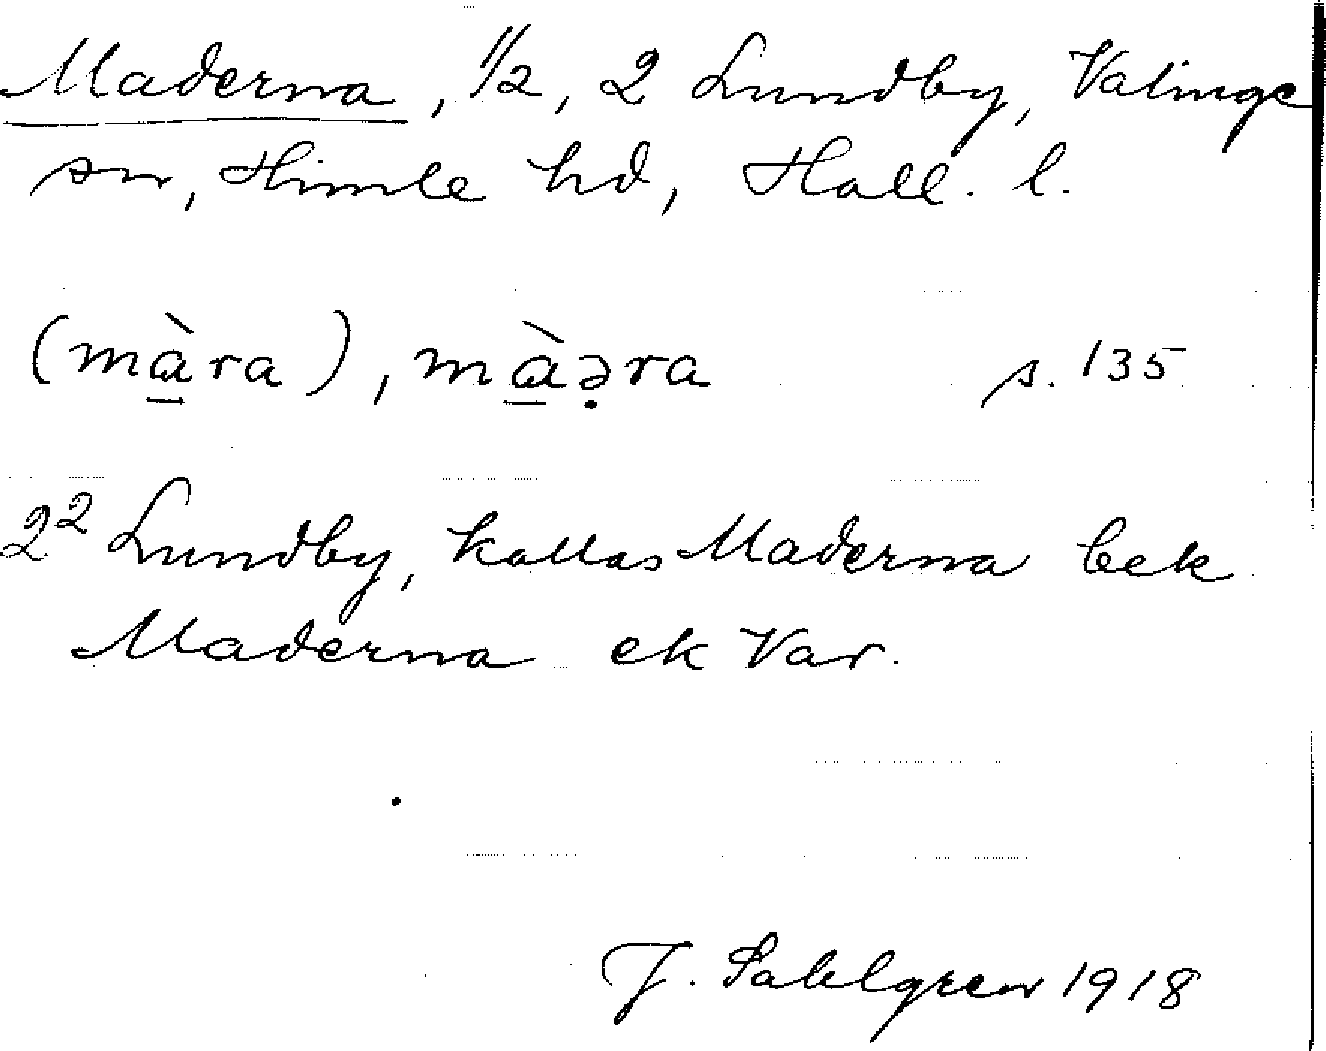 Maderna, 1/2, 2 Lundby, Valinge
sn, Himle hd, Hall. l.
(mà̱ra), mà̱ə̣ra s. 135
2² Lundby, kallas Maderna bek
Maderna ek Var.
J. Sahlgren 1918